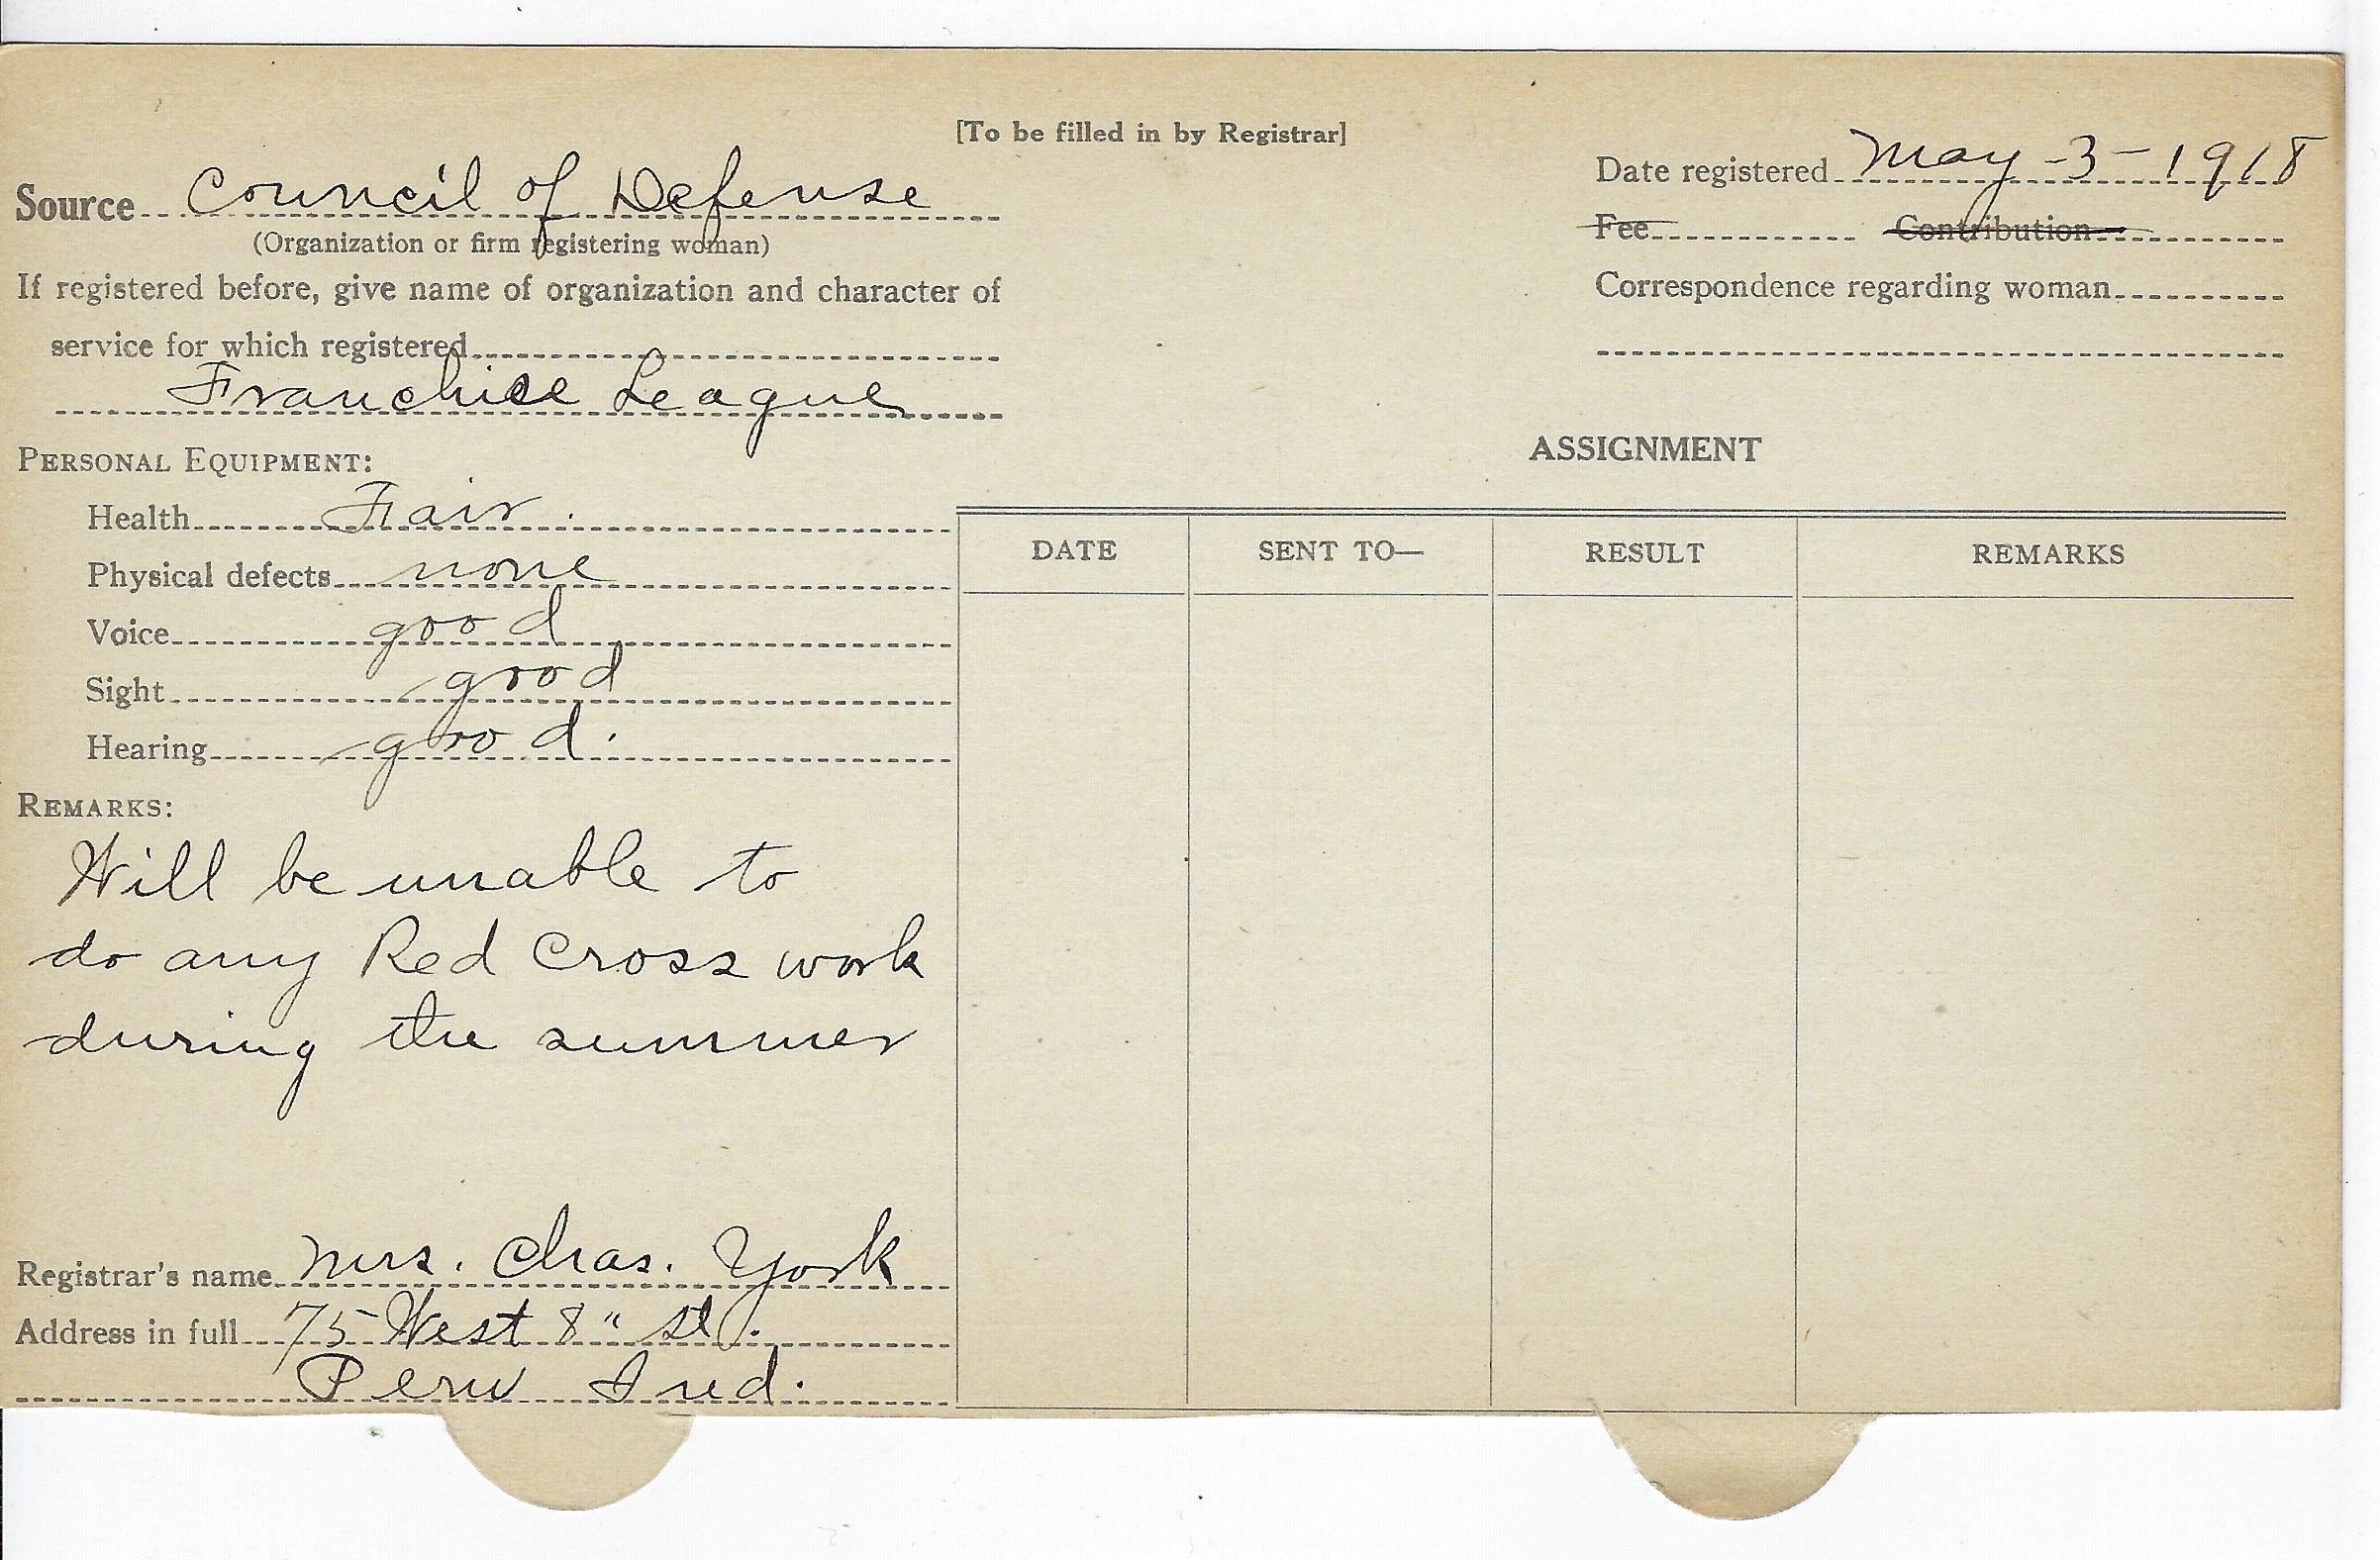 [To be filled in by Registrar]
Source Council of Defense
(Organization or firm registering woman)
If registered before, give name of organization and character of
service for which registered
Franchise League
Date registered May-3-1918
Fee Contribution
Correspondence regarding woman
PERSONAL EQUIPMENT:
Health Fair.
Physical defects none
Voice good
Sight good
Hearing good.
REMARKS:
Will be unable to
do any Red Cross work
during the summer
Registrar's name Mrs. Chas. York
Address in full 75 West 8" St.
Peru Ind.
ASSIGNMENT
DATE SENT TO— RESULT REMARKS